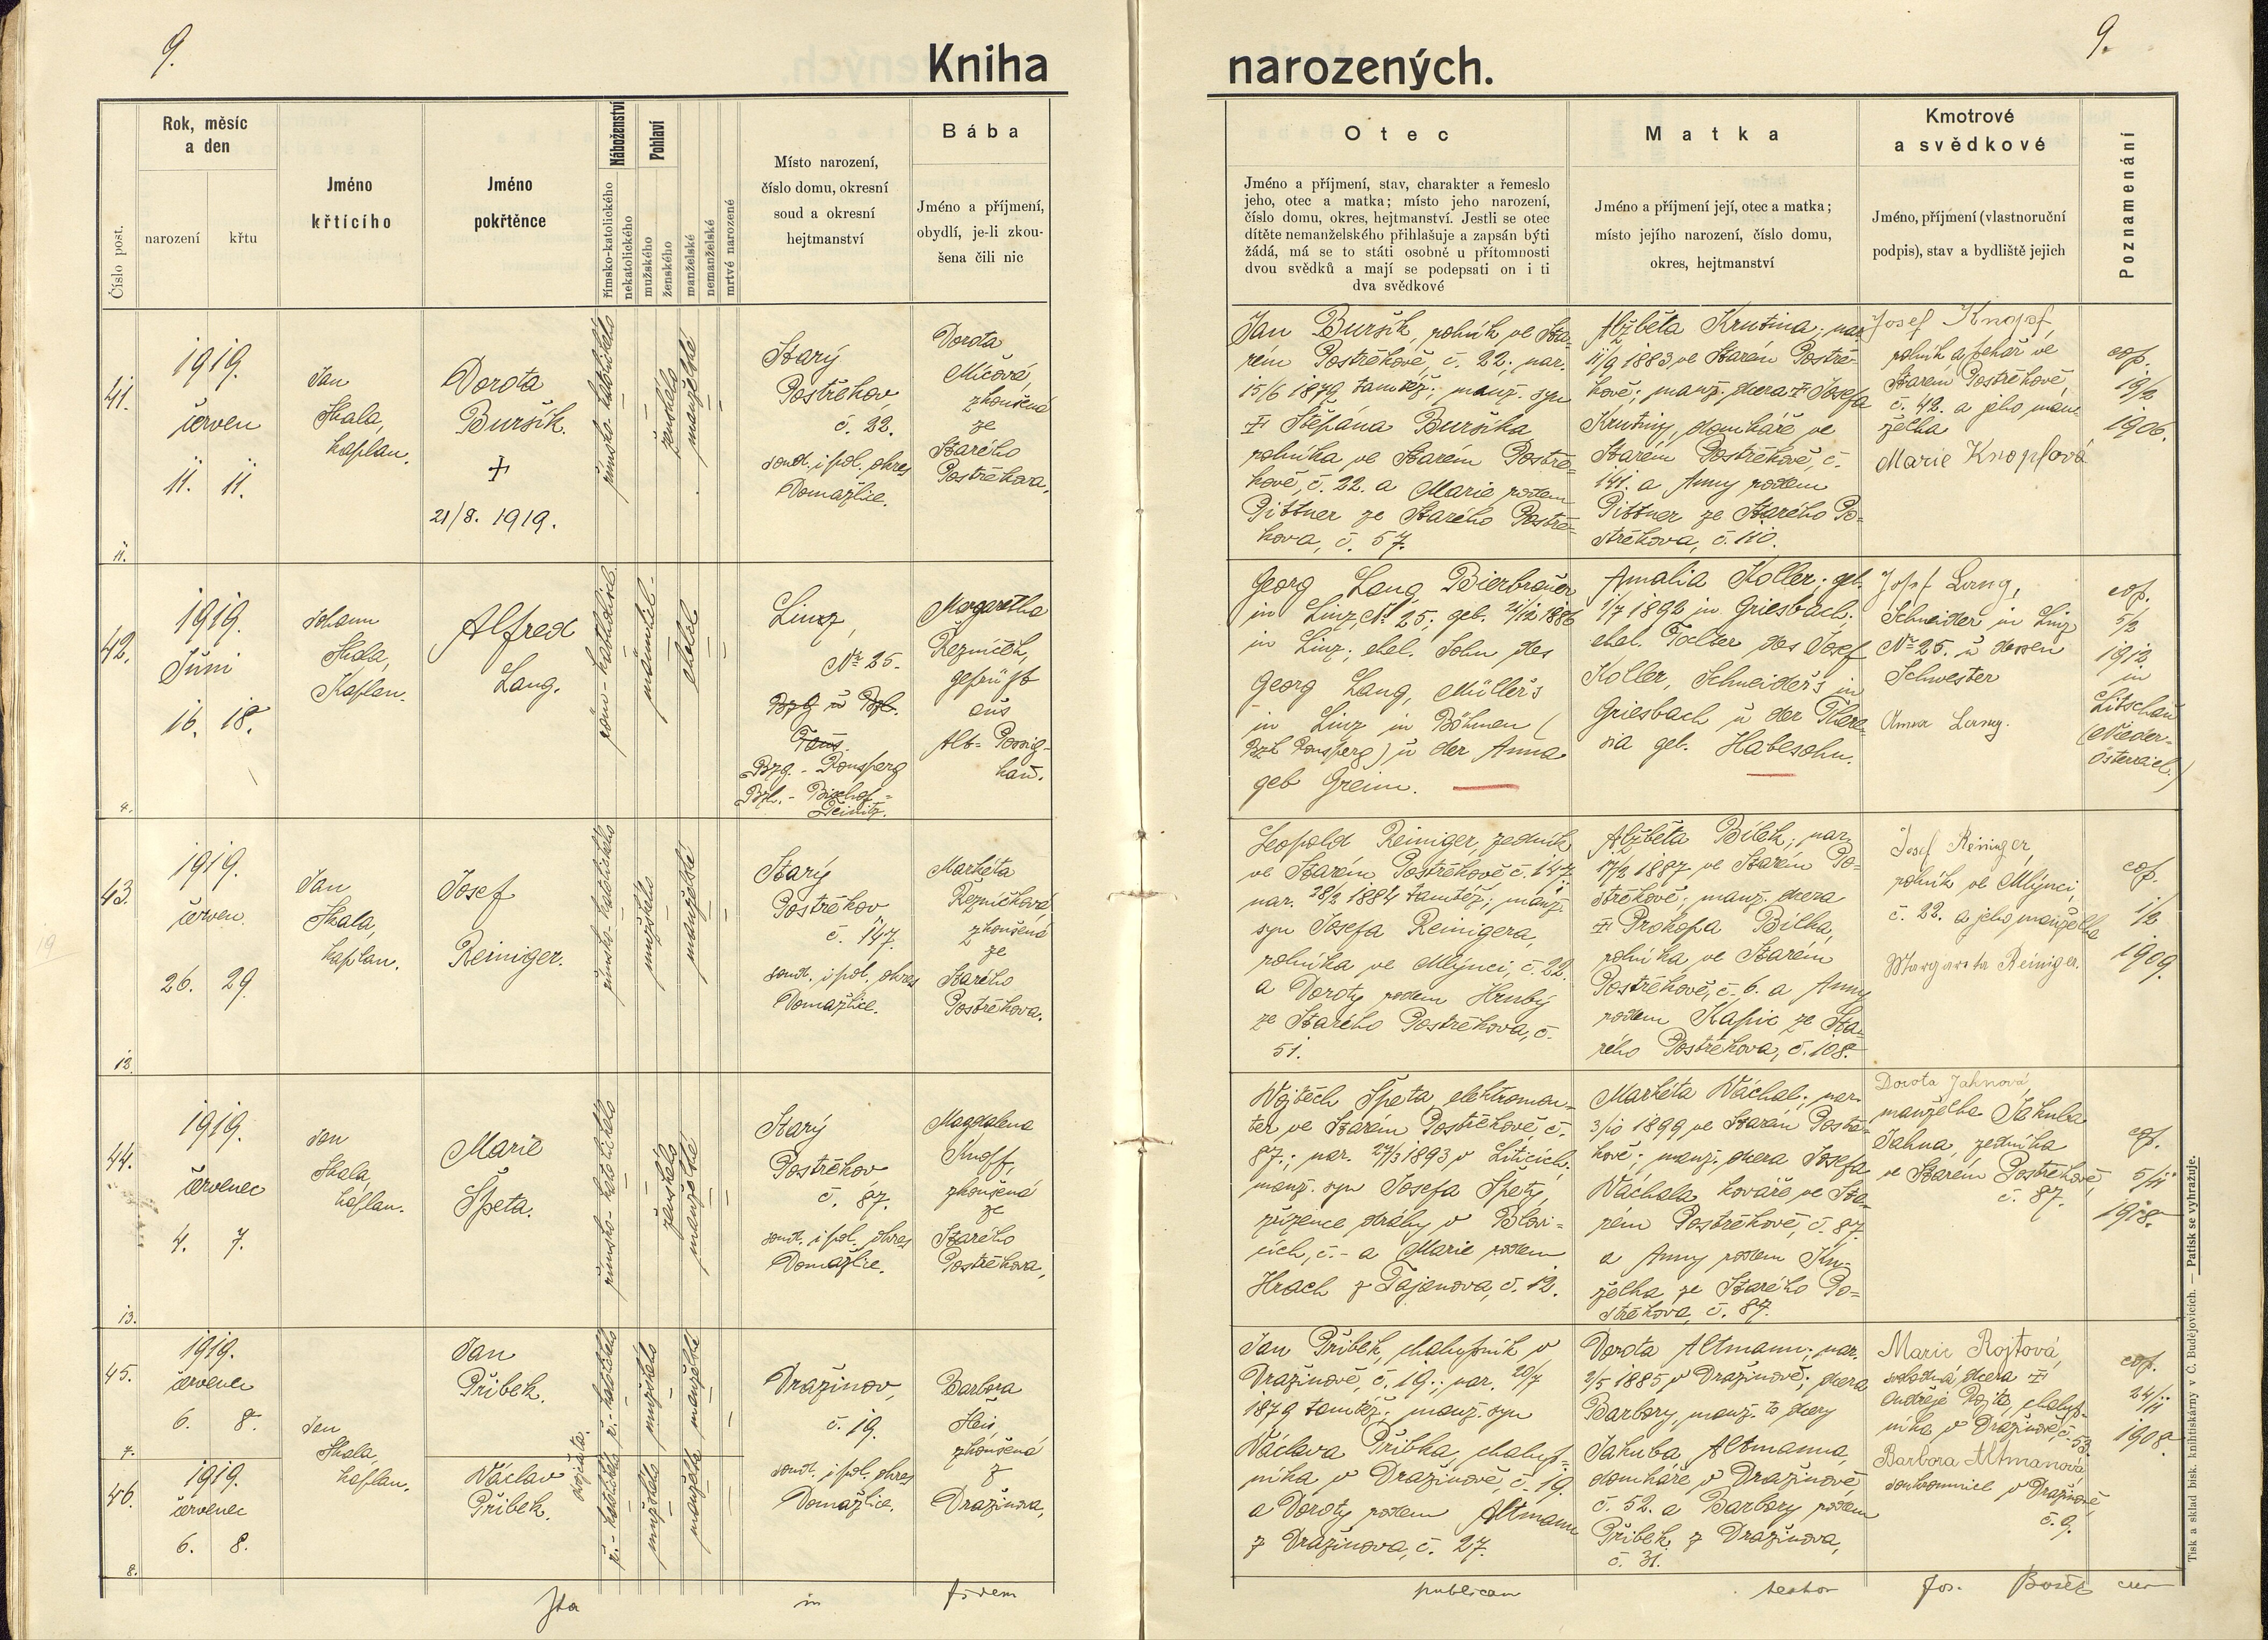 9.
Kniha
narozených.
9.
Číslo post.
Rok, měsíc
a den
narození
křtu
Jméno
křtícího
Jméno
pokřtěnce
Náboženství
římsko-katolického
nekatolického
Pohlaví
mužského
ženského
manželské
nemanželské
mrtvé narozené
Místo narození,
číslo domu, okresní
soud a okresní
hejtmanství
Bába
Jméno a příjmení,
obydlí, je-li zkou-
šena čili nic
Otec
Jméno a příjmení, stav, charakter a řemeslo
jeho, otec a matka; místo jeho narození,
číslo domu, okres, hejtmanství. Jestli se otec
dítěte nemanželského přihlašuje a zapsán býti
žádá, má se to státi osobně u přítomnosti
dvou svědků a mají se podepsati on i ti
dva svědkové
Matka
Jméno a příjmení její, otec a matka;
místo jejího narození, číslo domu,
okres, hejtmanství
Kmotrové
a svědkové
Jméno, příjmení (vlastnoruční
podpis), stav a bydliště jejich
Poznamenání
41.
1919.
červen
11. 11.
11.
Jan
Skala,
kaplan.
Dorota
Buršík.
+
21/8. 1919.
římsko-katolického
ženského
manželské
Starý
Postřekov
č. 22.
soud. i pol. okres
Domažlice.
Dorota
Micová,
zkoušená
ze
Starého
Postřekova.
Jan Buršík, rolník ve Sta-
rém Postřekově, č. 22.; nar.
15/6 1879 tamtéž; manž. syn
+ Štěpána Buršíka
rolníka ve Starém Postře-
kově, č. 22. a Marie rodem
Pittner ze Starého Postře-
kova, č. 57.
Alžběta Krutina; nar.
11/9 1883 ve Starém Postře-
kově; manž. dcera + Josefa
Krutiny, domkáře ve
Starém Postřekově, č.
141. a Anny rodem
Pittner ze Starého Po-
střekova, č. 110.
Josef Knopf,
rolník a pekař ve
Starém Postřekově,
č. 42. a jeho man-
želka
Marie Knopfová
cop.
19/2
1906.
42.
1919.
Juni
16. 18.
4.
Johann
Skala,
Kaplan.
Alfred
Lang.
röm-katholisch
männlich
ehelich
Linz,
No 25.
Bzg. - Ronsperg
Bzh. - Bischof-
Teinitz.
Margaretha
Řezníček,
geprüft
aus
Alt-Possig-
kau.
Georg Lang, Bierbrauer
in Linz, No 25; geb. 21/12 1886
in Linz; ehel. Sohn des
Georg Lang, Müllers
in Linz in Böhmen (
Bzh Ronsperg) u der Anna
geb Greim.
Amalia Koller; geb.
1/7 1892 in Griesbach;
ehel. Tochter des Josef
Koller, Schneiders in
Griesbach u der There-
sia geb. Habesohn.
Josef Lang,
Schneider in Linz
No 25. u dessen
Schwester
Anna Lang.
cop.
5/2
1912.
in
Litschau
(Nieder-
österreich.)
43.
1919.
červen.
26. 29.
12.
Jan
Skala,
kaplan.
Josef
Reiniger.
římsko-katolického
mužského
manželské
Starý
Postřekov
č. 147.
soud. i pol. okres
Domažlice.
Markéta
Řezníčková,
zkoušená
ze
Starého
Postřekova.
Leopold Reiniger, zedník
ve Starém Postřekově č. 147.
nar. 28/2 1884 tamtéž; manž.
syn Josefa Reinigera,
rolníka ve Mlýnci, č. 22.
a Doroty rodem Hrubý
ze Starého Postřekova, č.
51.
Alžběta Bílek; nar.
17/2 1887 ve Starém Po-
střekově; manž. dcera
+ Prokopa Bílka,
rolníka ve Starém
Postřekově, č. 6. a Anny
rodem Kapic ze Sta-
rého Postřekova, č. 108.
Josef Reiniger,
rolník ve Mlýnci,
č. 22. a jeho manželka
Margareta Reiniger.
cop.
1/2
1909.
44.
1919.
červenec
4. 7.
13.
Jan
Skala,
kaplan.
Marie
Špeta.
římsko-katolického
ženského
manželské
Starý
Postřekov
č. 87.
soud. i pol. okres
Domažlice.
Magdalena
Knopf,
zkoušená
ze
Starého
Postřekova.
Vojtěch Špeta, elektromon-
tér ve Starém Postřekově, č.
87.; nar. 27/3 1893 v Liticích;
manž. syn Josefa Špety,
zřízence dráhy v Blovi-
cích, č. - a Marie rodem
Hrach z Tajanova, č. 12.
Markéta Váchal; nar.
3/10 1899 ve Starém Postře-
kově; manž. dcera Josefa
Váchala, kováře ve Sta-
rém Postřekově, č. 87.
a Anny rodem Kn-
želka ze Starého Po-
střekova, č. 87.
Dorota Jahnová,
manželka Jakuba
Jahna, zedníka
ve Starém Postřekově,
č. 87.
cop.
5/11
1918.
45.
1919.
červenec
6. 8.
7.
Jan
Skala,
kaplan.
Jan
Přibek.
dvojčata.
ř.-katolického
mužského
manželské
Dražinov,
č. 19.
soud. i pol. okres
Domažlice.
Barbora
Heis,
zkoušená
z
Dražinova.
Jan Přibek, chalupník v
Dražinově, č. 19.; nar. 20/7
1879 tamtéž; manž. syn
Václava Přibka, chalup-
níka v Dražinově, č. 19.
a Doroty rodem Altmann
z Dražinova, č. 27.
Dorota Altmann; nar.
2/5 1885 v Dražinově; dcera
Barbory, manž. to dcery
Jakuba Altmanna,
domkáře v Dražinově,
č. 52. a Barbory rodem
Přibek z Dražinova,
č. 31.
Marie Rojtová,
svobodná, dcera +
Ondřeje Rojta, chalup-
níka v Dražinově, č. 53.
Barbora Altmanová
soukromnice v Dražinově,
č. 9.
cop.
24/11
1908.
46.
1919.
červenec
6. 8.
8.
Václav
Přibek.
ř.-katolické
mužského
manželské
Ita in fidem
publicam testor Jos. Boněš cur
Tisk a sklad bisk. knihtiskárny v Č. Budějovicích. — Patisk se vyhražuje.